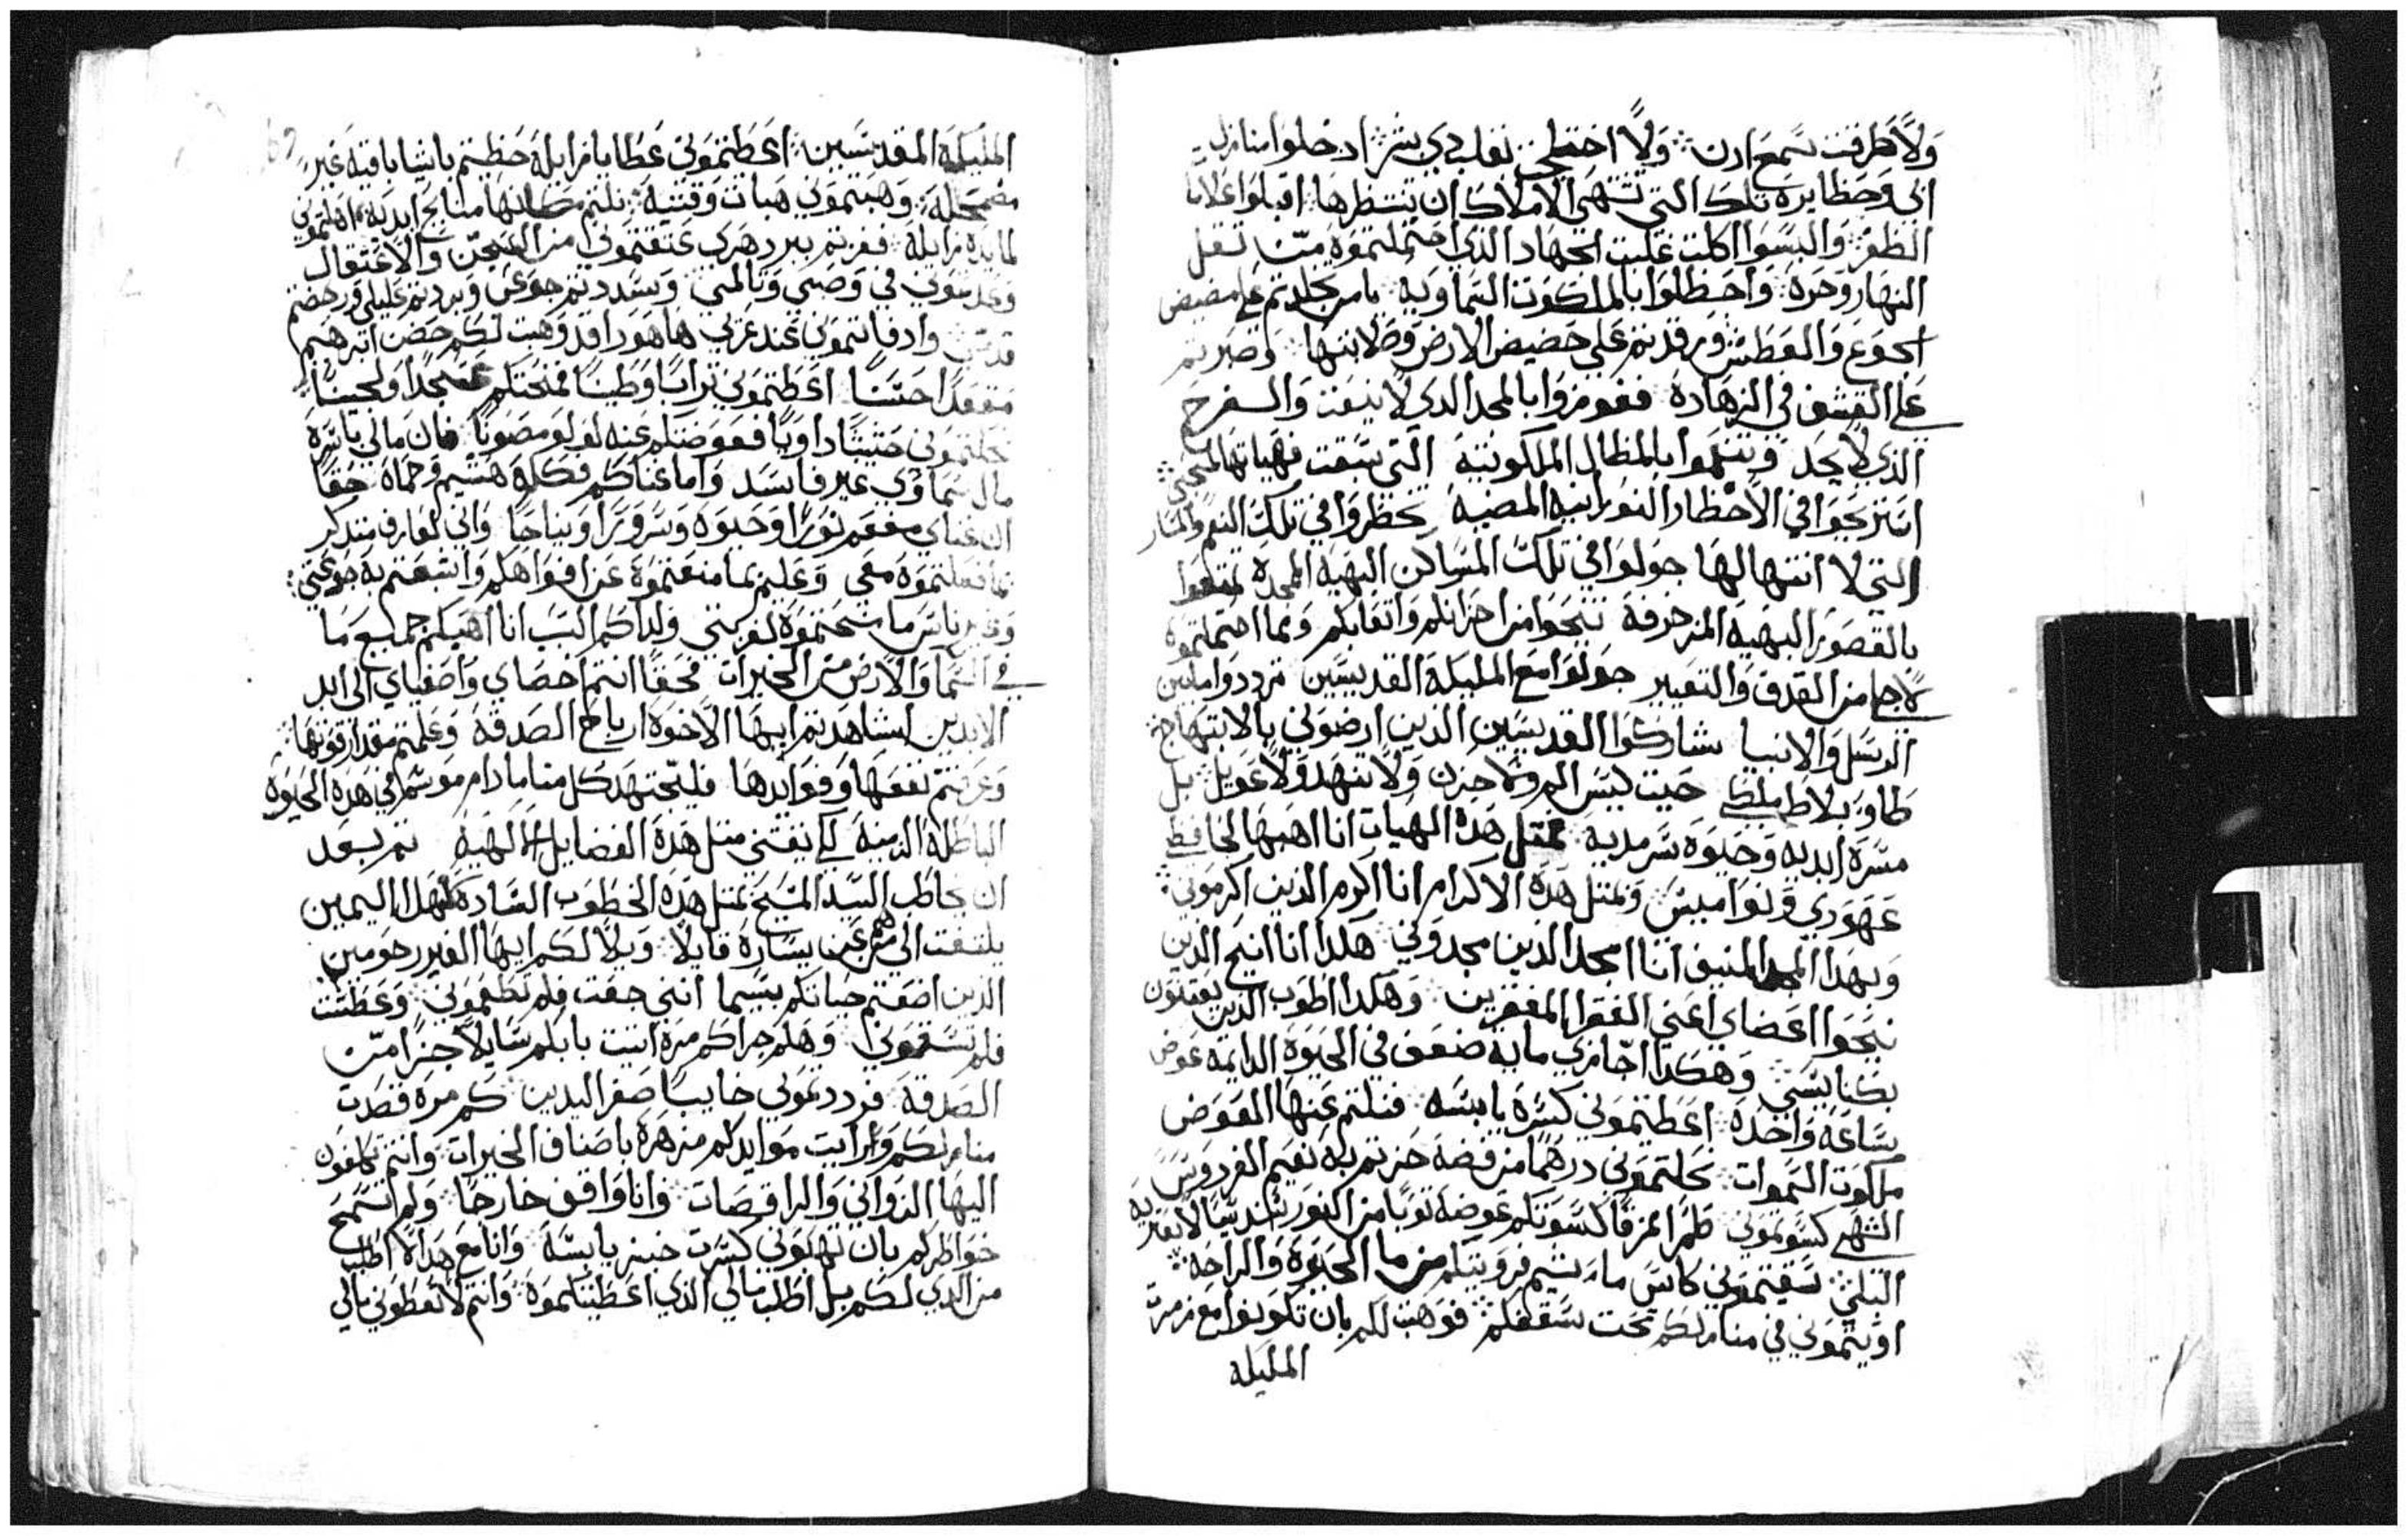 ولا طرقت سمع ادن ولا اختلجن بقلب دي بشر ادخلوا منازل
ابي وحظايره تلك التي تشتهى الاملاك ان تنتظرها اقبلوا علامات
الظفر والبسوا اكلت غلبت الجهاد الذي احتملتموه من تقل
النهار وحره واحظلوا بالملكوت السماويه يا من تجلدتم على مضيض
الجوع والعطش ورقدتم على حضيض الارض وصلابتها وصبرتم
على القشف في الزهاده ففوزوا بالمجد الدي لا ينعت والفرح
الذي لا يحد وتنعموا بالمظال الملكوتيه التي سبقت فهياتها لمحبي
استريحوا في الاخطار النورانيه المضيه تخطروا في تلك النعم والمسار
التي لا انتها لها جولوا في تلك المساكن البهيه الممجده تمتعوا
بالقصور البهيه المزخرفه تنيحوا من احزانكم واتعابكم وبما احتملتموه
لاجلي من القدف والتعيير جولوا مع المليكه القديسين ترددوا مابين
الرسل والانبيا شاركوا القديسين الذين ارضوني بالابتهاج
طاو بلاط ملكي حيت ليس الم ولا حزن ولا تنهد ولا عويل بل
مسره ابديه وحيوه سرمديه بمتل هده الهبات انا اهبها لحافظي
عهودي ونواميسي وبمتل هذه الاكرام انا اكرم الذين اكرموني
وبهدا المجد المنيف انا امجد الذين مجدوني هكدا انا انيح الدين
نيحوا اعضاي اعني الفقرا المعترين وهكدا اطوب الذين يعتنون
بكنايسي وهكدا اجازي مايه ضعف في الحيوه الدايمه عوض
ساعه واحده اعطيتموني كسره يابسه فنلتم عنها العوض
ملكوت السموات نحلتموني درهما من فضه حزتم به نعيم الفردوس
الشهي كسوتموني طمرا مزقا كسوتكم عوضه توبا من النور سندسيا لا يعتريه
البلى سقيتموني كاس ما ... فرويتكم من ما الحيوه والراحه
اويتموني في منازلكم تحت سقفكم فوهبت لكم بان تكونوا مع زمرت
المليكه
المليكه المقديسين اعطيتموني عطايا زايله حظيتم باشيا باقيه غير
مضمحله وهبتموني هبات وقتيه نلتم مكانها منايح ابديه اهلتموني
لمايده زايله ففزتم ببر دهري عتقتموني من السجن والاعتقال
... في وصبي وتالمي وسددتم جوعي وبردتم غليلي ورحضتم
قدمي وادفاتموني عند عريي ها هودا قد وهبت لكم حضن ابرهيم
مقعدا حسنا اعطيتموني ترابا وطينا فمنحتكم عسجدا ولجينا
نحلتموني حشيشا داويا فعوضتكم عنه لولو مصونا فان مالي باسره
مال سماوي غير فاسد واما غناكم فكله هشيم وحماه حقا
ان غناي مفعم نورا وحيوه وسرورا ونياحا واني لعارف متدكر
بما فعلتموه معي وعليم بما منعتموه عن افواهكم واشبعتم به جوعتي
وخبير باسر ما شحتموه لغربتي ولداكم السبب انا اهبكم جميع ما
في السما والارض من الخيرات فحقا انتم اخصاي واصفياي الى ابد
الابدين اشاهدتم ايها الاخوه ارباح الصدقه وعلمتم مقدار قوتها
وعرفتم نفعها وفوايدها فليجتهد كل منا مادام موسما في هده الحيوه
الباطله الدنيه لكي يقتني متل هذه الفضايل الالهيه تم بعد
ان يخاطب السيد المسيح بمتل هذه الخطوب الساده لاهل اليمين
يلتفت الى من هم عن يساره قايلا ويلا لكم ايها الغير رحومين
الذين اضعتم حياتكم بتسيما انني جعت فلم تطعموني وعطشت
فلم تسقوني وهلم جرا كم مره اتيت بابكم سايلا جزا من
الصدقه فرددتموني خايبا صفر اليدين كم مره قصدت
منازلكم ورايت موايدكم مزهره باصناف الخيرات وانتم تدعون
اليها الزواني والراقصات وانا واقف خارجا ولم تسمح
خواطركم بان تهبوني كسرت خبز يابسه وانا مع هدا لا اطلب
من الدي لكم بل اطلب مالي الذي اعطيتكموه وانتم لا تعطوني مالي